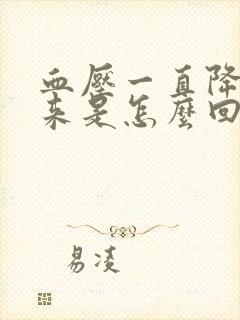 血壓一直降
來是怎麼回
易凌